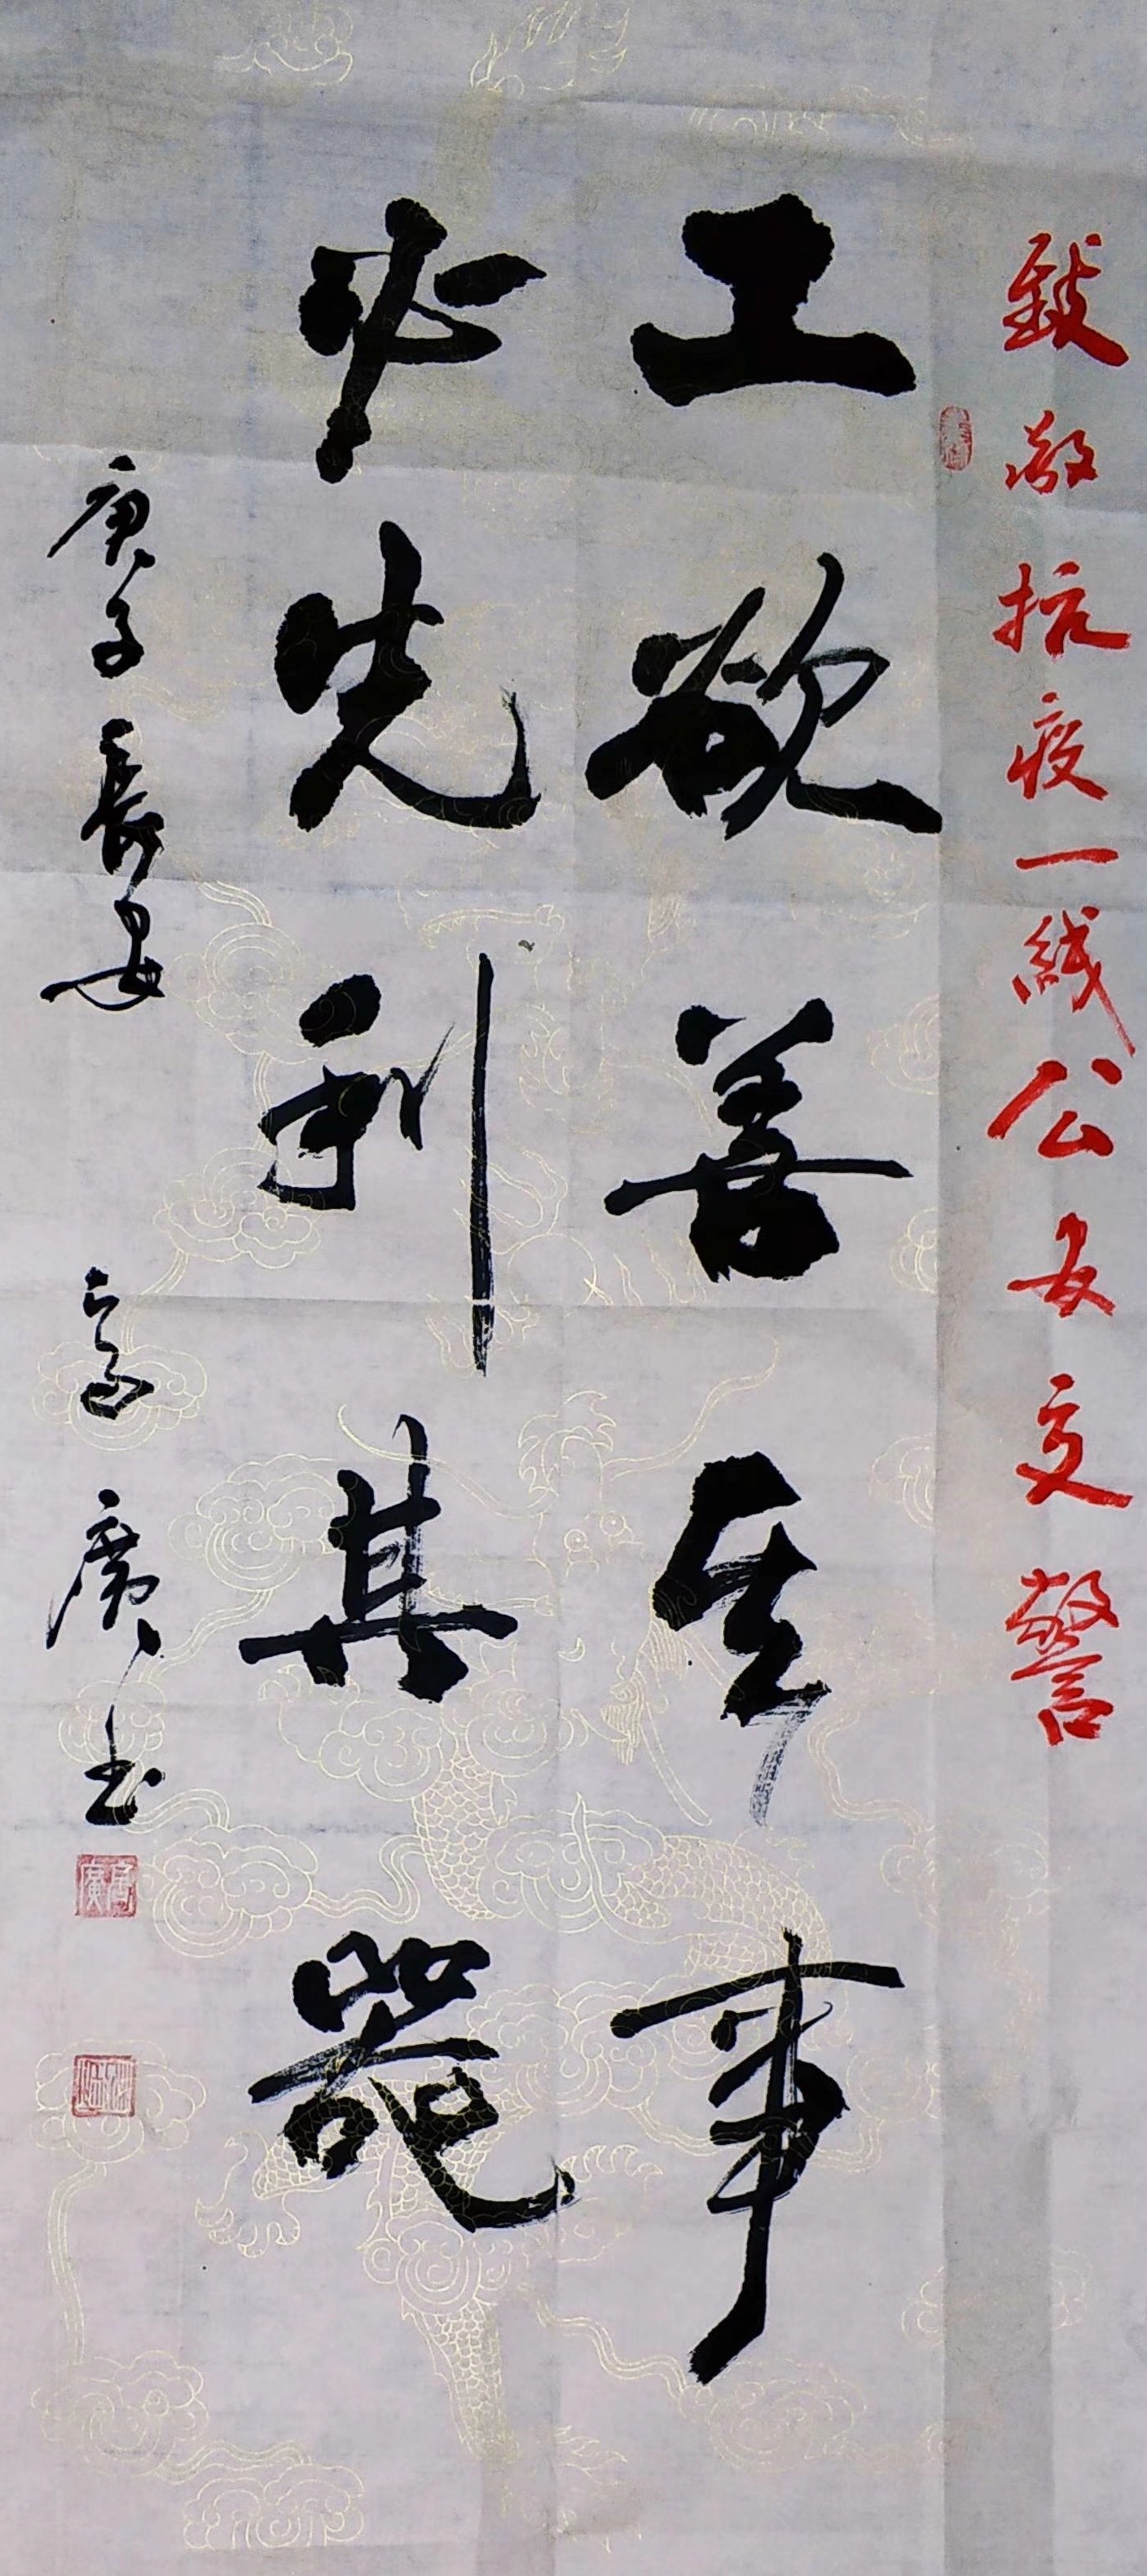 致敬抗疫一线公安交警
工欲善其事
必先利其器
庚子長安
高廣书